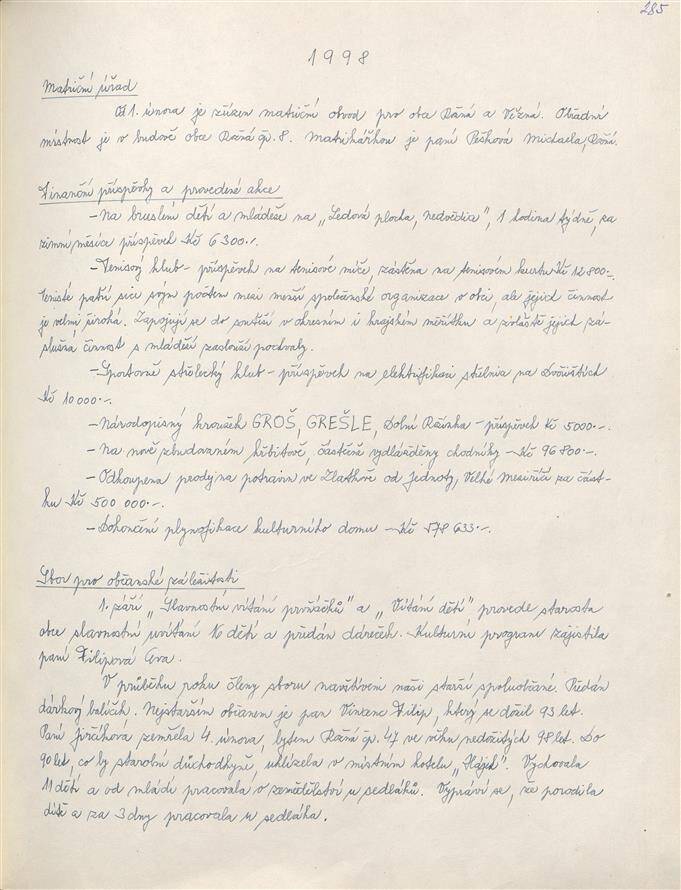 285
1998
Matriční úřad
Od 1. února je zřízen matriční obvod pro obce Rožná a Věžná. Obřadní
místnost je v budově obce Rožná čp. 8. Matrikářkou je paní Pešková Michaela, Rožná.
Finanční příspěvky a provedené akce
- Na bruslení dětí a mládeže na "Ledová plocha, Nedvědia", 1 hodina týdně, za
zimní měsíce příspěvek Kč 6 300.-.
- Tenisový klub - příspěvek na tenisové míče, zástěna na tenisovém kurtu Kč 12 800.-.
Tenisté patří sice svým počtem mezi menší společenské organizace v obci, ale jejich činnost
je velmi široká. Zapojují se do soutěží v okresním i krajském měřítku a zvláště jejich zá-
služná činnost s mládeží zaslouží pochvaly.
- Sportovně střelecký klub - příspěvek na elektrifikaci střelnice na Dvořištích
Kč 10 000.-.
- Národopisný kroužek GROŠ, GREŠLE, Dolní Rožínka - příspěvek Kč 5000.-.
- Na nově zbudovaném hřbitově, částečně vydlážděny chodníky - Kč 96 800.-.
- Odkoupena prodejna potravin ve Zlatkově od Jednoty, Velké Meziříčí za část-
ku Kč 500 000.-.
- Dokončení plynofikace kulturního domu - Kč 578 633.-.
Sbor pro občanské záležitosti
1. září "Slavnostní vítání prvňáčků" a "Vítání dětí" provedl starosta
obce slavnostní uvítání 16 dětí a přidán dáreček. Kulturní program zajistila
paní Filipová Eva.
V průběhu roku členy sboru navštíveni naši starší spoluobčané. Předán
dárkový balíček. Nejstarším občanem je pan Vincenc Filip, který se dožil 93 let.
Paní Jirčíková zemřela 4. února, bytem Rožná čp. 47 ve věku nedožitých 98 let. Do
90 let, co by starobní důchodkyně, uklízela v místním hotelu "Hájek". Vychovala
11 dětí a od mládí pracovala v zemědělství u sedláků. Vypráví se, že porodila
dítě a za 3 dny pracovala u sedláka.